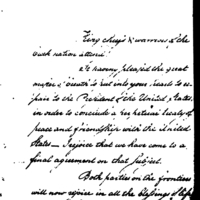 King chiefs & warriors of the
Creek nation attend
It having pleased the great
maker of breath to put into your hearts to re-
pair to the President of the United States,
in order to conclude a perpetual treaty of
peace and friendship with the United
States — I rejoice that we have come to a
final agreement on that subject.
Both parties on the frontiers
will now rejoice in all the blessings of